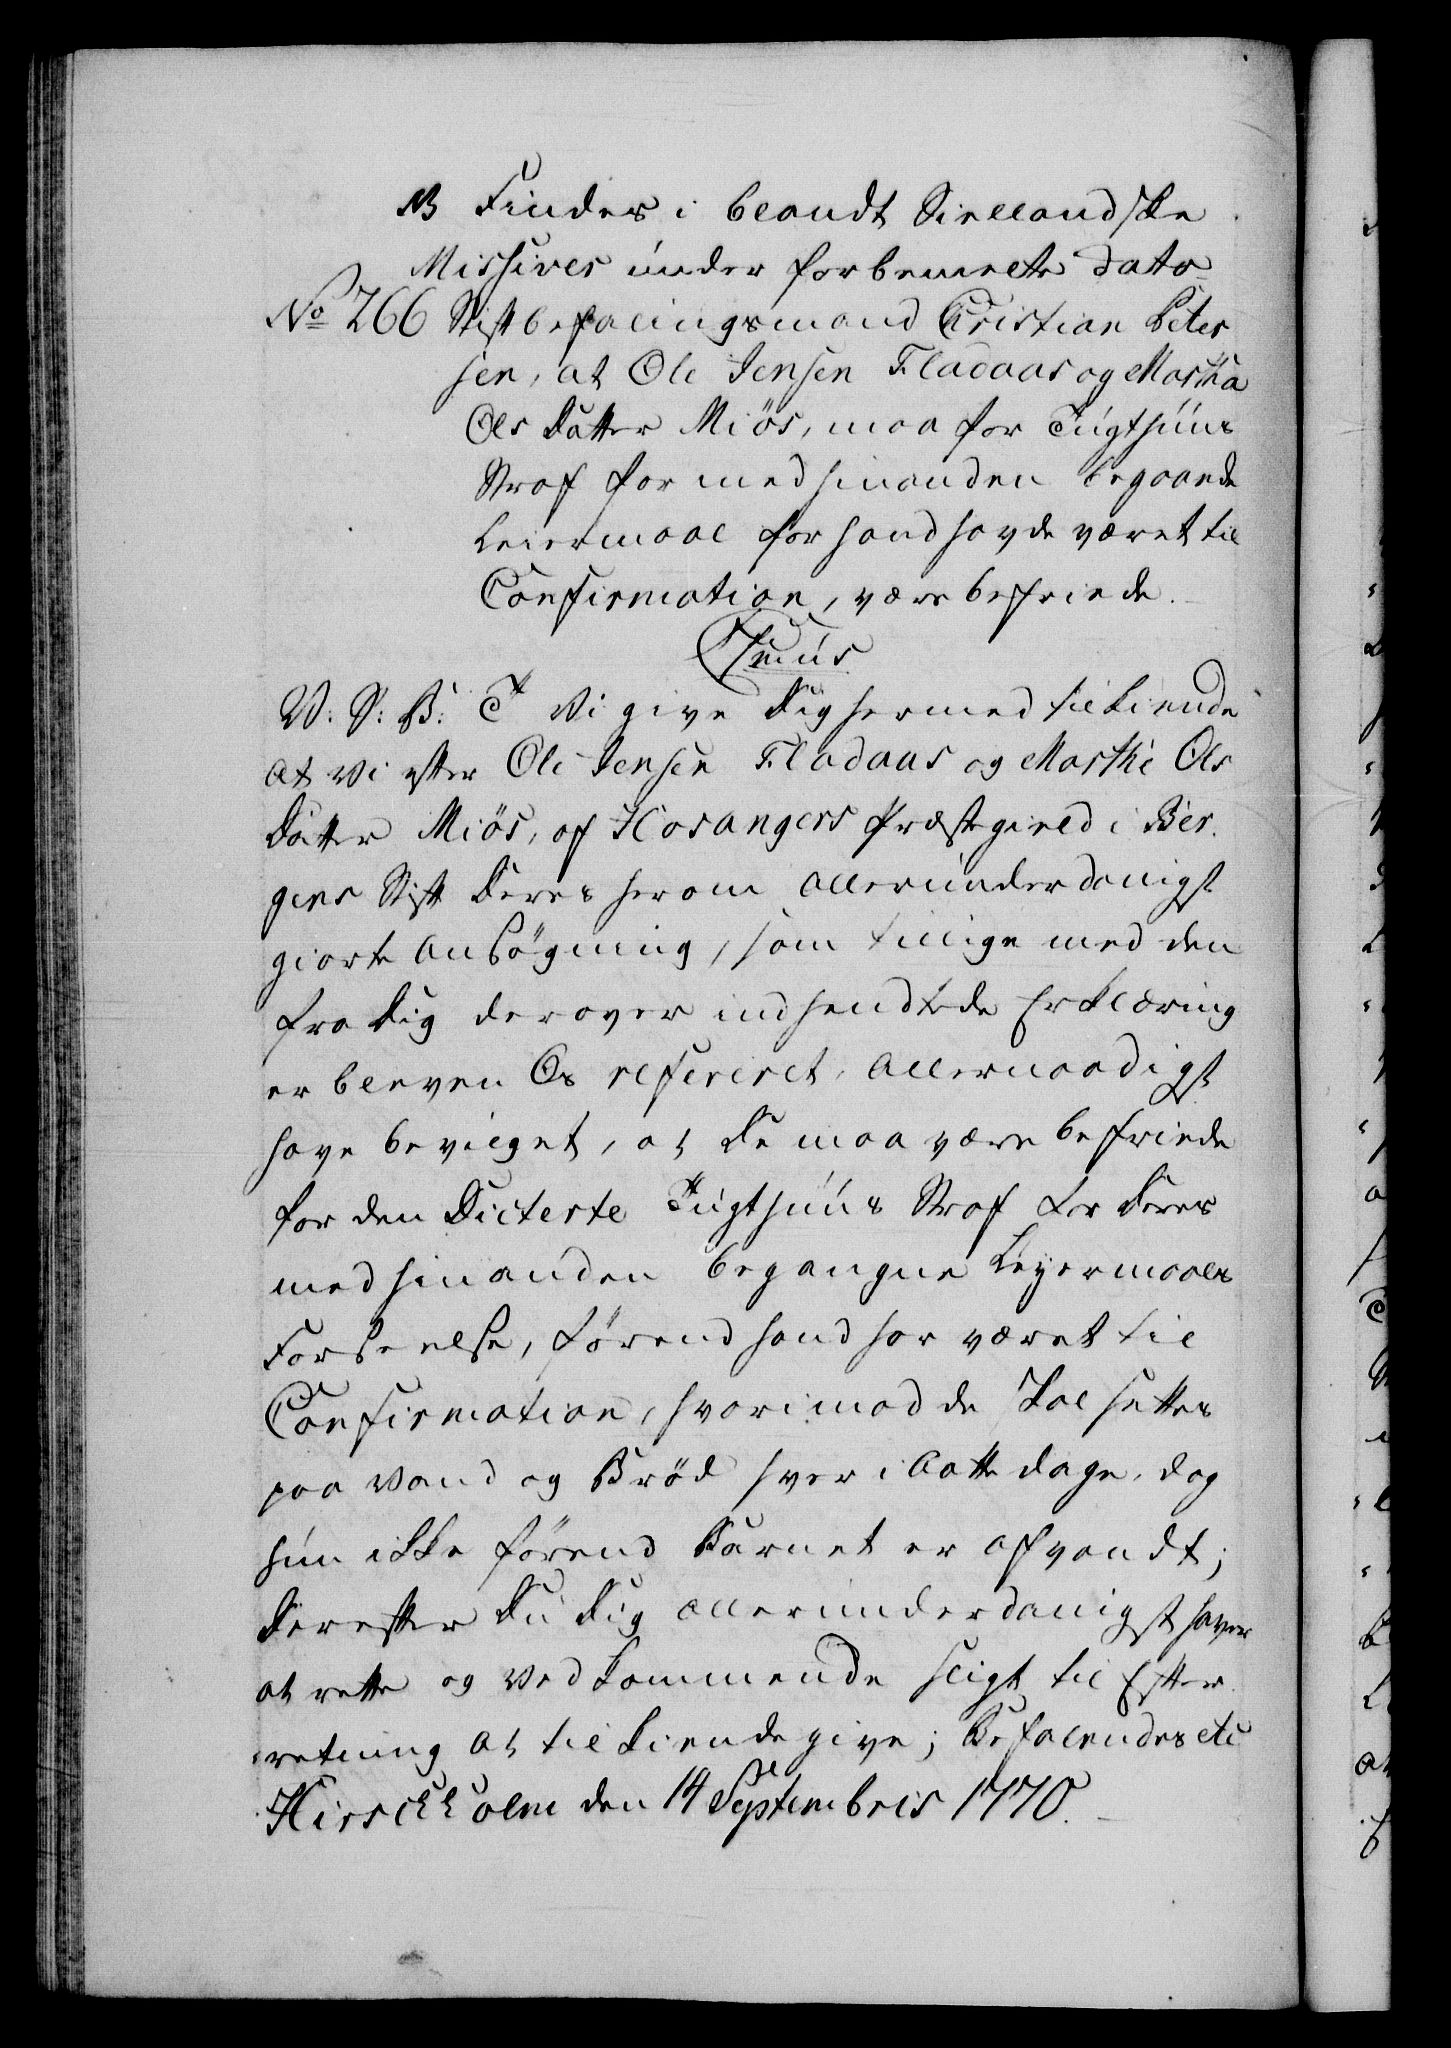 NB Findes i blandt Siellandske
Missives under forbemelte dato
No 266 Stiftbefalingsmand Cristian Peter
sen, at Ole Jensen Fladaas og Martha
Ols Datter Miös, maa for Tugthuus
Straf for med hinanden begaaede
Leiermaal før hand havde været til
Confirmation, være befriede.
C Sens
V: S: B: T Vi give Dig hermed tilkiende
at vi efter Ole Jensen Fladaas og Marthe Ols
Datter Miös, af Hosangers Præstegield i Ber
gens Stift Deres herom allerunderdanigst
giorte Ansögning, som tillige med den
fra Dig derover indsendtede Erklæring
er bleven Os refereret, allernaadigst
have bevilget, at De maa være befriede
for den Dicterte Tugthuus Straf for Deres
med hinanden begangne Leyermaals
Forseelse, førend hand har været til
Confirmation, hvorimod de skal settes
paa Vand og Bröd hver i Aatte dage, dog
hun ikke förend Barnet er afvandt;
Derefter Du Dig allerunderdanigst haver
at rette og Vedkommende sligt til Efter
retning at tilkiende give; Befalendes etc
Hirschholm den 14 Septembris 1770.